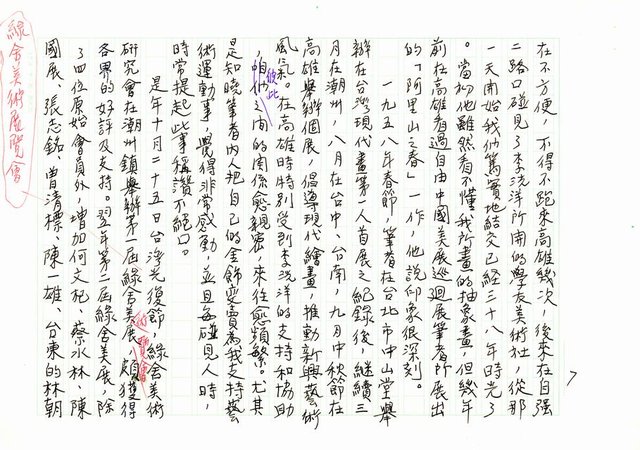 7
在不方便，不得不跑來高雄幾次，後來在自强
二路口碰見了李洗洋所開的學友美術社，從那
一天開始我們篤實地結交已經三十八年時光了
。當初他雖然看不懂我所畫的抽象畫，但幾年
前在高雄看過自由中國美展巡迴展筆者所展出
的「阿里山之春」一作，他說印象很深刻。
一九五八年春節，筆者在台北市中山堂舉
辦在台灣現代畫第一人首展之紀錄後，繼續三
月在潮州，八月在台中、台南，九月中秋節在
高雄舉辦個展，倡導現代繪畫，推動新興藝術
風氣。在高雄時特別受到李洗洋的支持和協助
，咱們彼此之間的關係愈親密，來往愈頻繁。尤其
是知曉筆者內人把自己的金飾變賣為我支持藝
術運動事，覺得非常感動，並且每碰見人時，
時常提起此事稱讚不絕口。
是年十月二十五日台灣光復節，綠舍美術
研究會在潮州鎮舉辦第一屆綠舍美術展覽會，頗獲得
各界的好評及支持。翌年第二屆綠舍美展，除
了四位原始會員外，增加何文杞、蔡水林、陳
國展、張志銘、曾清標、陳一雄、台東的林朝
綠舍美術展覽會